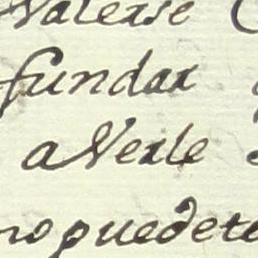 Valerse
fundar
aVerle
no puede te